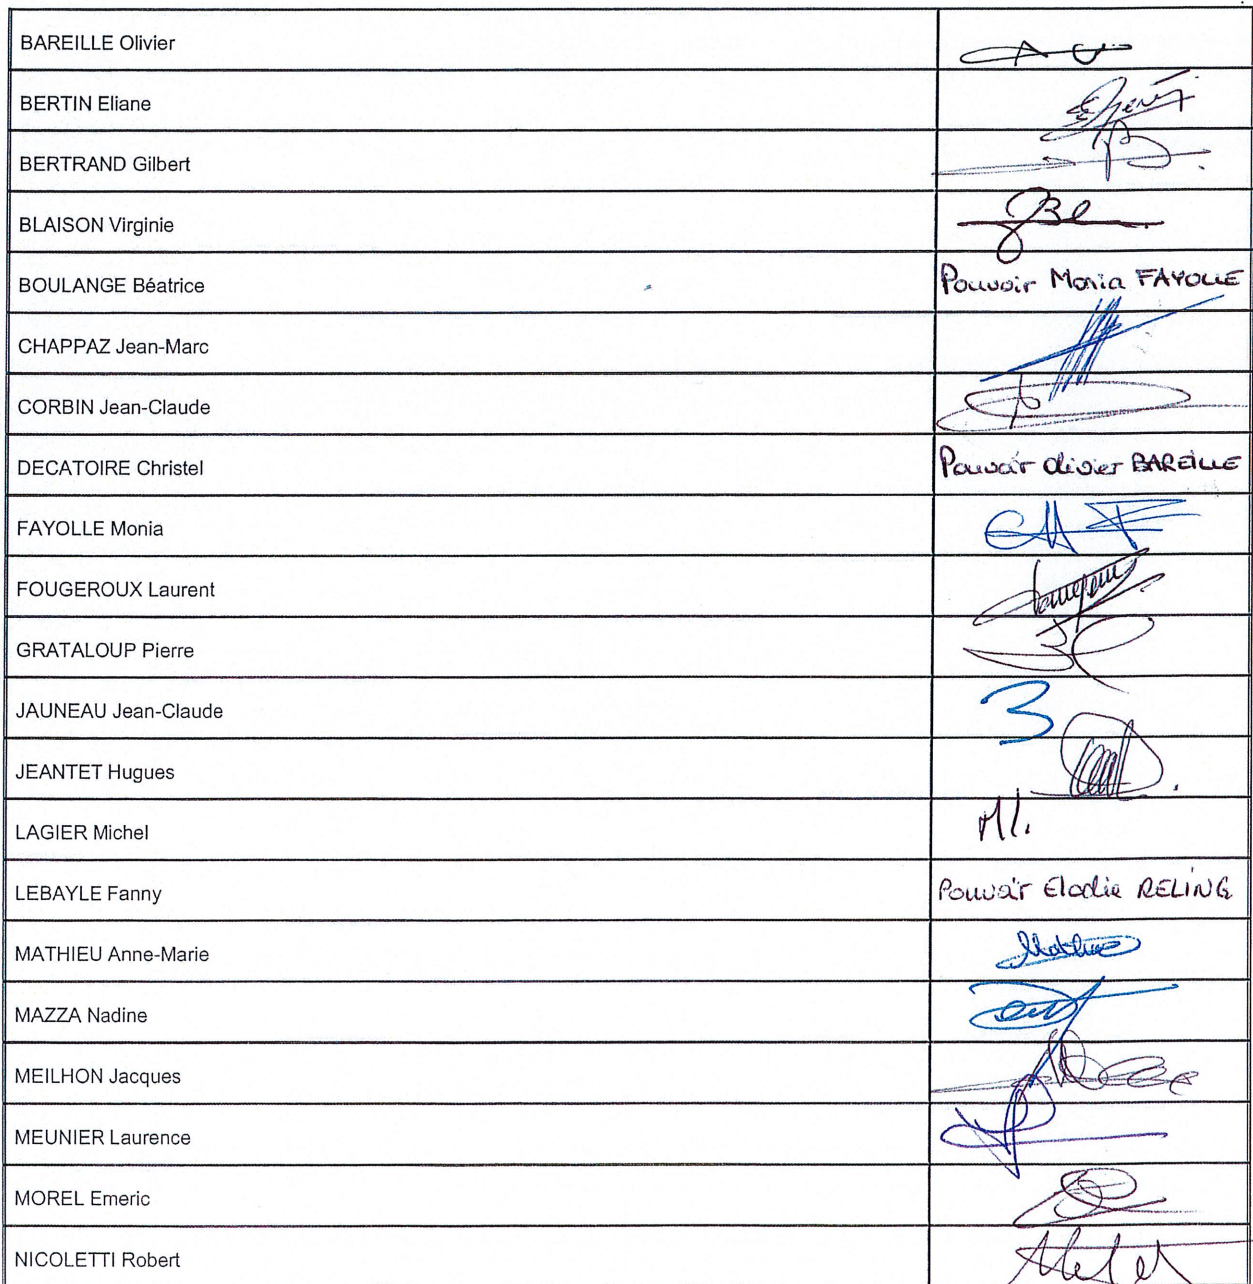 BAREILLE Olivier
BERTIN Eliane
BERTRAND Gilbert
BLAISON Virginie
BOULANGE Béatrice
Pouvoir Monia FAYOLLE
CHAPPAZ Jean-Marc
CORBIN Jean-Claude
DECATOIRE Christel
Pouvoir Olivier BAREILLE
FAYOLLE Monia
FOUGEROUX Laurent
GRATALOUP Pierre
JAUNEAU Jean-Claude
JEANTET Hugues
LAGIER Michel
LEBAYLE Fanny
Pouvoir Elodie RELING
MATHIEU Anne-Marie
MAZZA Nadine
MEILHON Jacques
MEUNIER Laurence
MOREL Emeric
NICOLETTI Robert